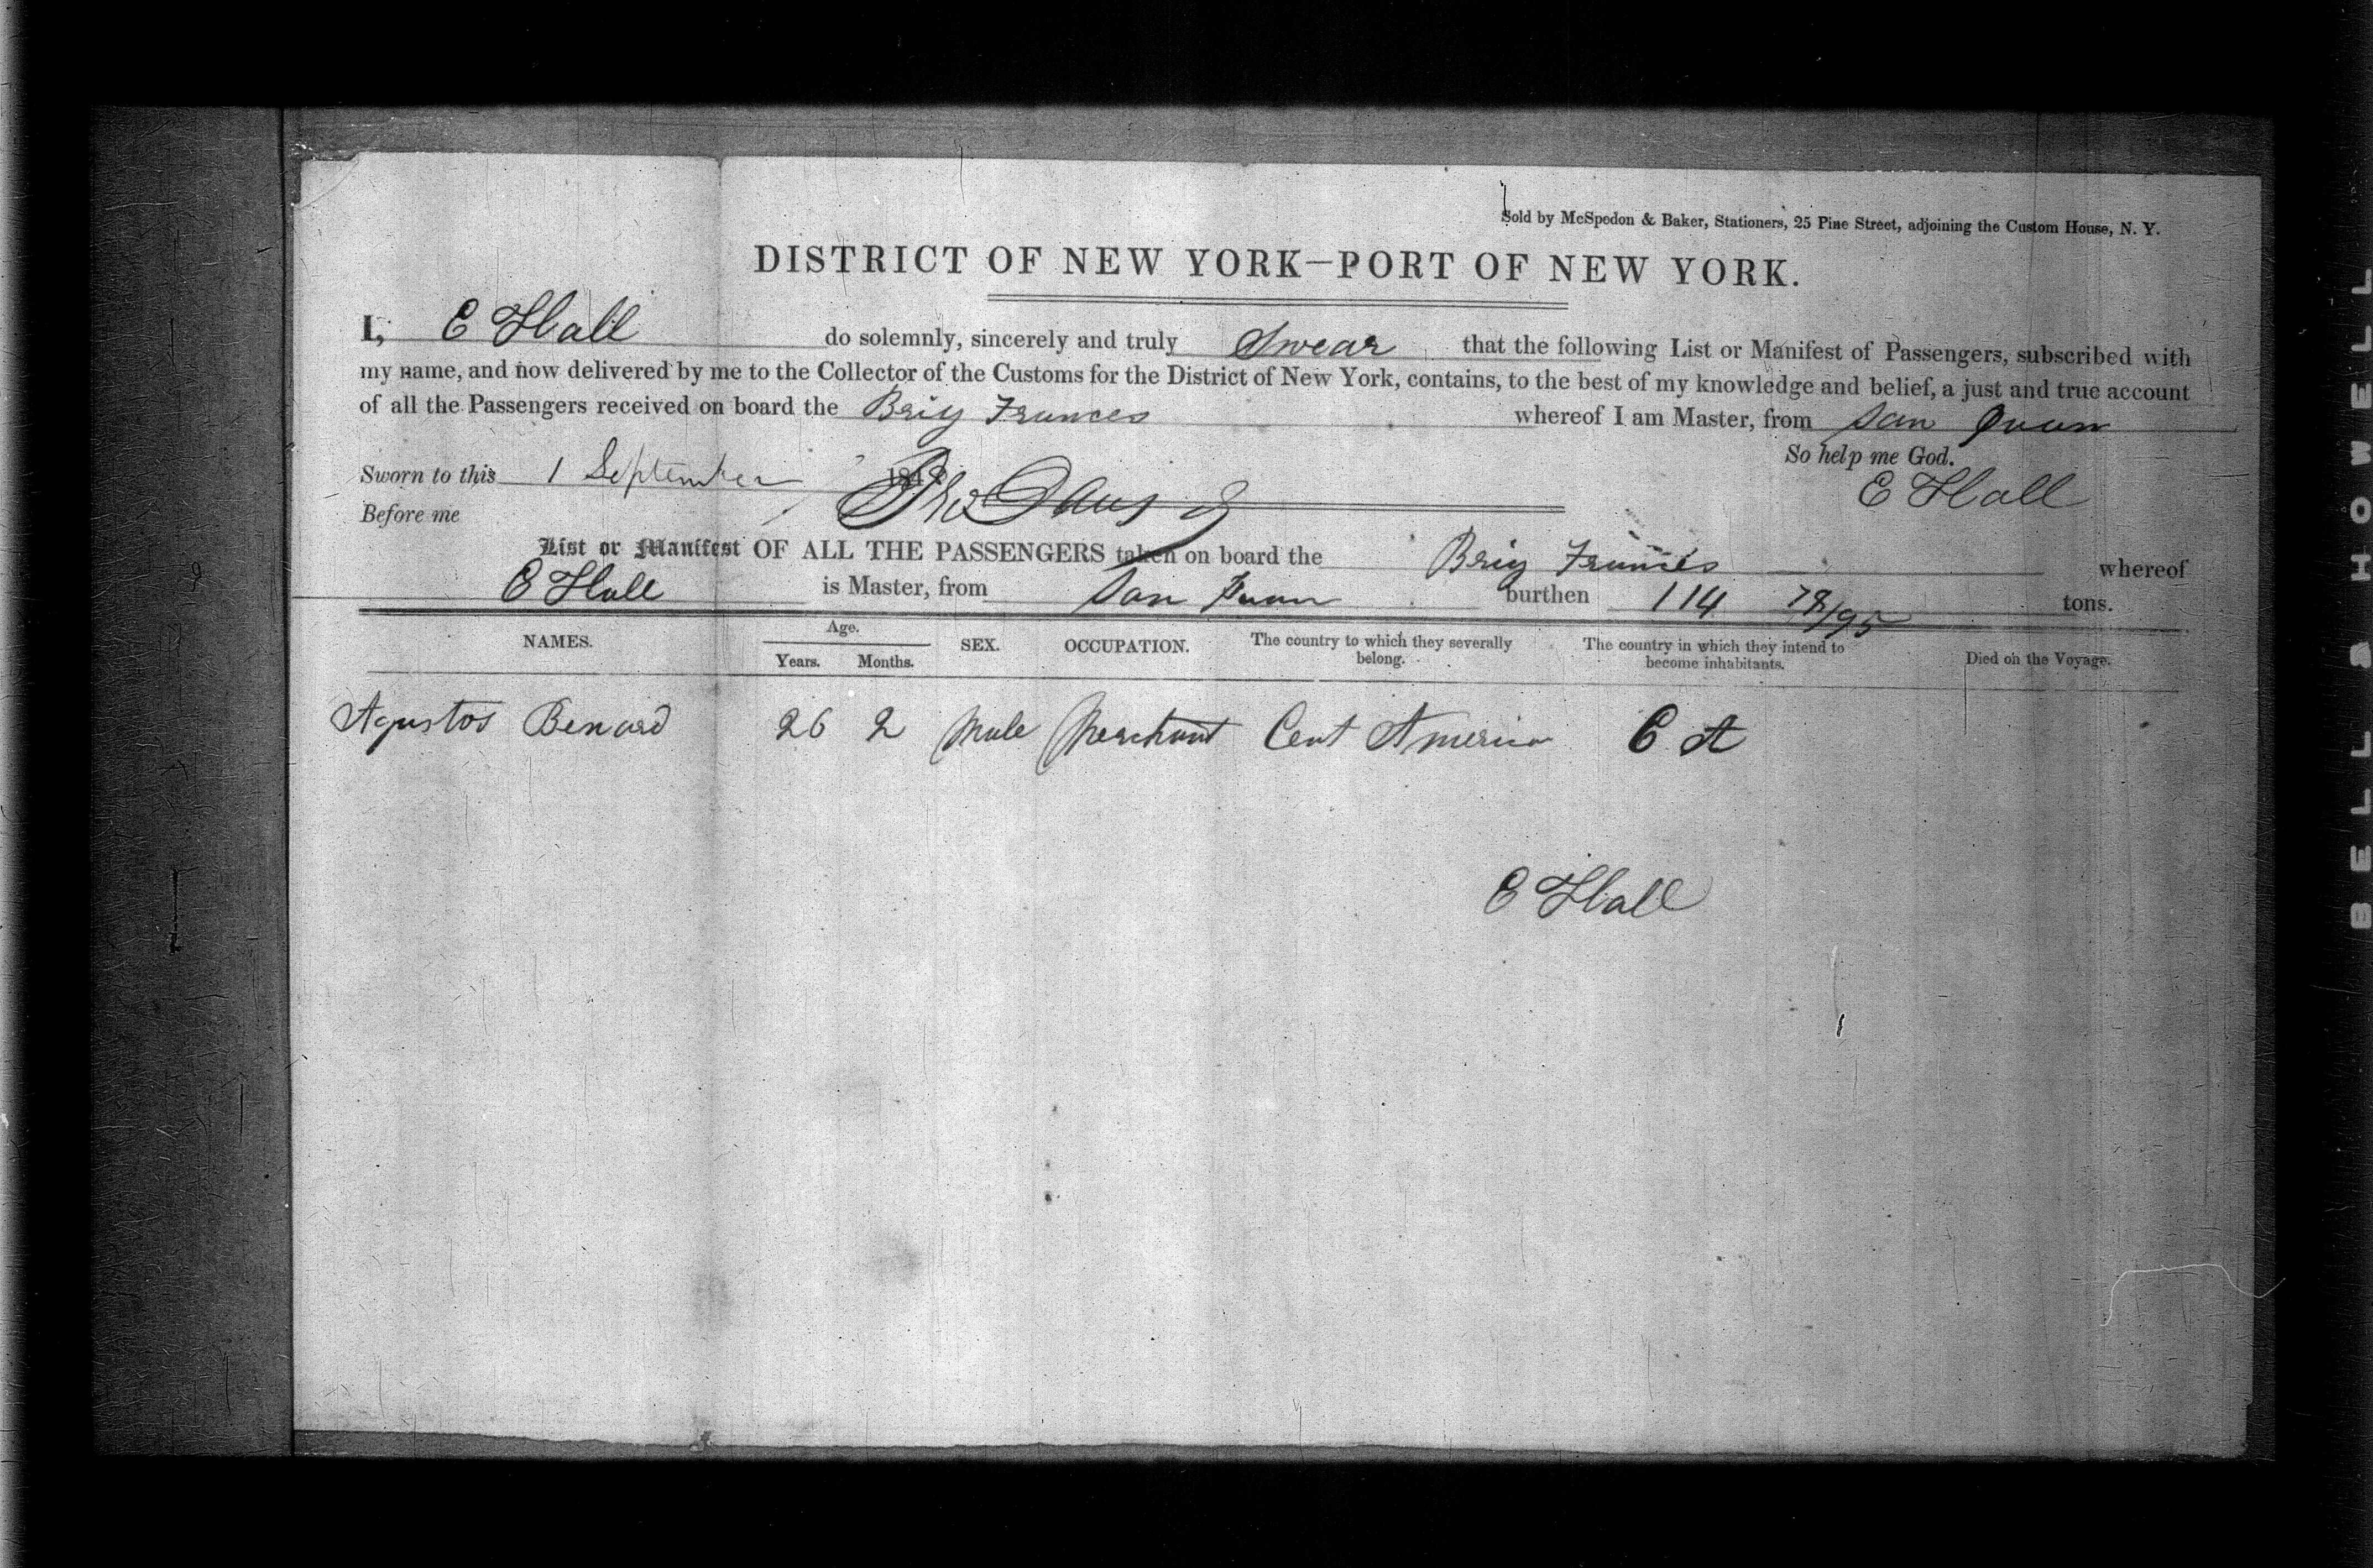 Sold by McSpedon & Baker, Stationers, 25 Pine Street, adjoining the Custom House, N. Y.
DISTRICT OF NEW YORK—PORT OF NEW YORK.
I, E Hall do solemnly, sincerely and truly Swear that the following List or Manifest of Passengers, subscribed with
my name, and now delivered by me to the Collector of the Customs for the District of New York, contains, to the best of my knowledge and belief, a just and true account
of all the Passengers received on board the Brig Frances whereof I am Master, from San Juan
So help me God.
Sworn to this 1 September E Hall
Before me
List or Manifest OF ALL THE PASSENGERS taken on board the Brig Frances whereof
E Hall is Master, from San Juan burthen 114 78/95 tons.
NAMES. Age. Years. Months. SEX. OCCUPATION. The country to which they severally belong. The country in which they intend to become inhabitants. Died on the Voyage.
Agustos Benard 26 2 Male Merchant Cent America C A
E Hall
BELL & HOWELL